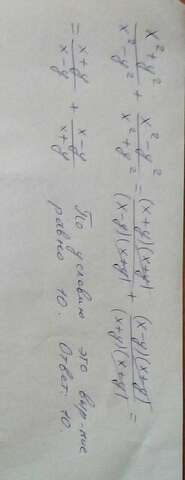 x²+y²/x²-y² + x²-y²/x²+y² = (x+y)(x+y)/(x-y)(x+y) + (x-y)(x+y)/(x+y)(x+y) =
= x+y/x-y + x-y/x+y По условию это выр-ние
равно 10. Ответ: 10.